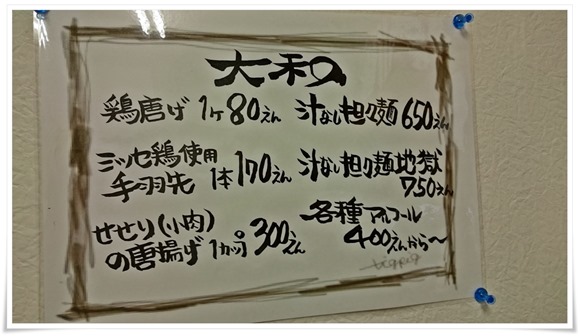 大和の
鶏唐げ 1ヶ80えん
ミツセ鶏使用
手羽先 1本170えん
せせり(小肉)
の唐揚げ 1カップ300えん
汁なし担々麺 650えん
汁なし担々麺地獄
750えん
各種アルコール
400えんから〜